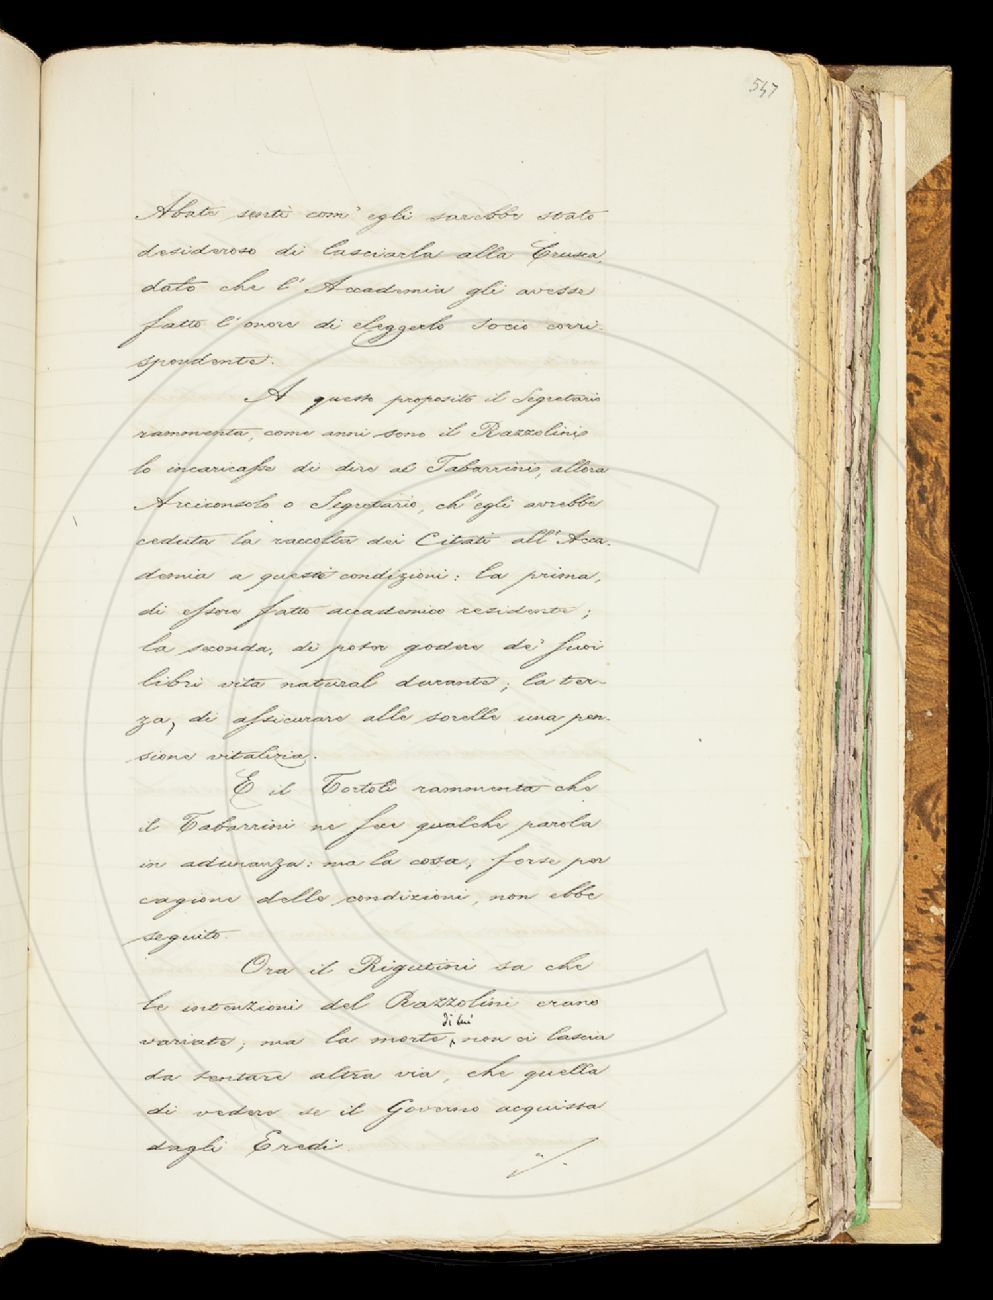 547
Abate sentì com' egli sarebbe stato
desideroso di lasciarla alla Crusca,
dato che l' Accademia gli avesse
fatto l' onore di eleggerlo socio corri-
spondente.
A questo proposito il Segretario
rammenta, come anni sono il Razzolini
lo incaricasse di dire al Tabarrini, allora
Arciconsolo o Segretario, ch' egli avrebbe
ceduta la raccolta dei Citati all' Acca-
demia a queste condizioni: la prima,
di essere fatto accademico residente;
la seconda, di poter godere de' suoi
libri vita natural durante; la ter-
za, di assicurare alle sorelle una pen-
sione vitalizia.
E il Tortoli rammenta che
il Tabarrini ne fece qualche parola
in adunanza: ma la cosa, forse per
cagione delle condizioni, non ebbe
seguito.
Ora il Rigutini sa che
le intenzioni del Razzolini erano
variate; ma la morte di lui non ci lascia
da tentare altra via, che quella
di vedere se il Governo acquista
dagli Eredi.